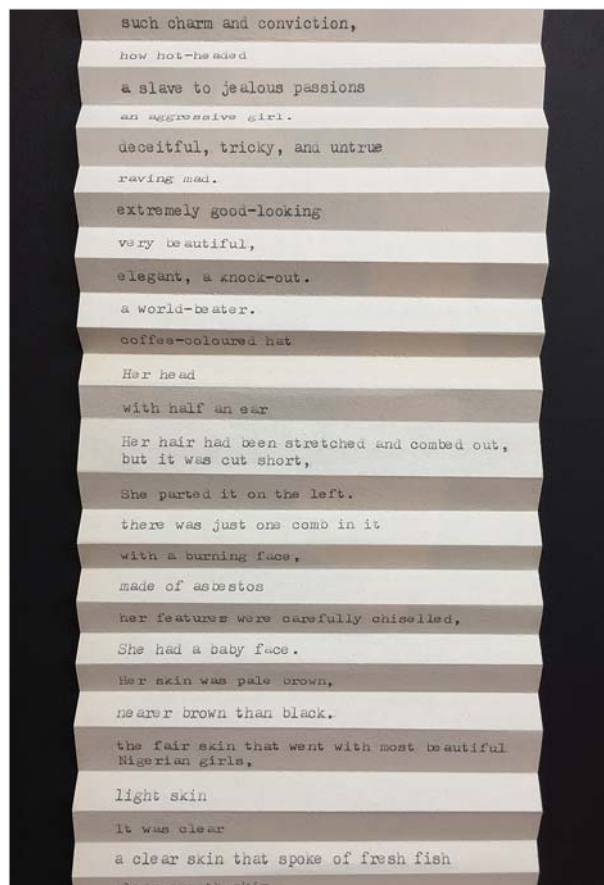 such charm and conviction,
how hot-headed
a slave to jealous passions
an aggressive girl.
deceitful, tricky, and untrue
raving mad.
extremely good-looking
very beautiful,
elegant, a knock-out.
a world-beater.
coffee-coloured hat
Her head
with half an ear
Her hair had been stretched and combed out,
but it was cut short,
She parted it on the left.
there was just one comb in it
with a burning face,
made of asbestos
her features were carefully chiselled,
She had a baby face.
Her skin was pale brown,
nearer brown than black.
the fair skin that went with most beautiful
Nigerian girls,
light skin
It was clear
a clear skin that spoke of fresh fish